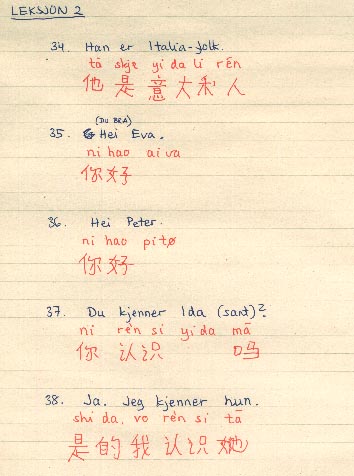 LEKSJON 2
34. Han er Italia-folk.
tā skje yi da li rén
他是意大利人
(DU BRA)
35. Hei Eva.
ni hao ai va
你好
36. Hei Peter.
ni hao pitø
你好
37. Du kjenner Ida (sant)?
ni rén si yi da mā
你 认识 吗
38. Ja. Jeg kjenner hun.
shi da, vo rén si tā
是的我认识她